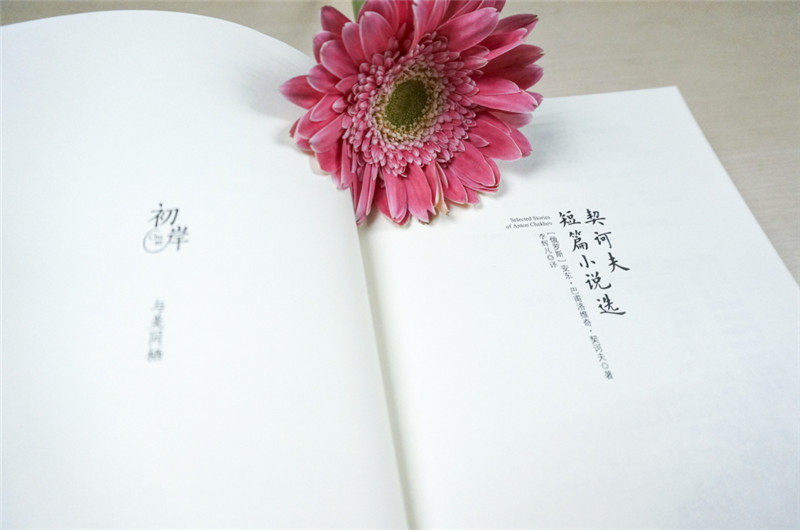 初岸
与美同栖
Selected Stories
of Anton Chekhov
契诃夫
短篇小说选
[俄罗斯]安东·巴甫洛维奇·契诃夫◎著
李辉凡◎译